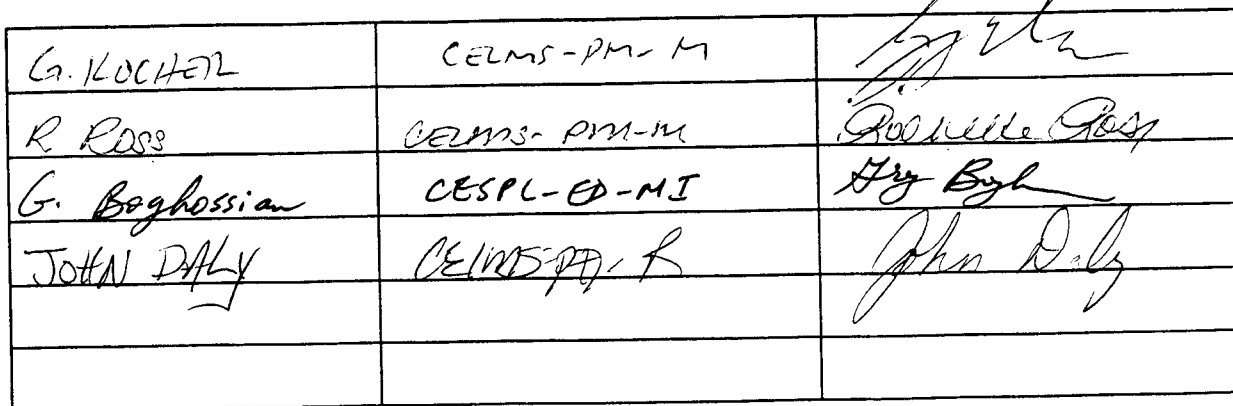 G. KOCHER CELMS-PM-M
R Ross CELMS-PM-M Rochelle Ross
G. Boghossian CESPL-ED-MI
JOHN DALY John Daly